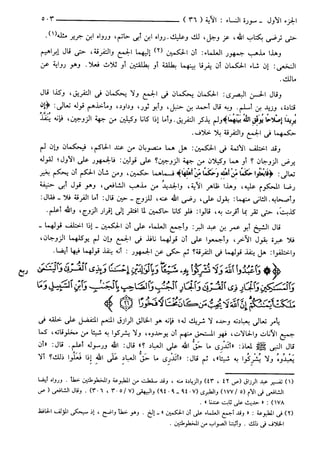 الجزء الأول - سورة النساء : الآية ( ٣٦ )
٥٠٣
حتى ترضى بكتاب الله، عز وجل، لك وعليك. رواه ابن أبي حاتم، ورواه ابن جرير مثله(١).
وهذا مذهب جمهور العلماء: أن الحكمين (٢) إليهما الجمع والتفرقة، حتى قال إبراهيم
النخعي: إن شاء الحكمان أن يفرقا بينهما بطلقة أو بطلقتين أو ثلاث فعلا. وهو رواية عن
مالك.
وقال الحسن البصري: الحكمان يحكمان في الجمع ولا يحكمان في التفريق، وكذا قال
قتادة، وزيد بن أسلم. وبه قال أحمد بن حنبل، وأبو ثور، وداود، ومأخذهم قوله تعالى: ﴿إِن
يُرِيدَا إِصْلَاحًا يُوَفِّقِ اللَّهُ بَيْنَهُمَا﴾ ولم يذكر التفريق. وأما إذا كانا وكيلين من جهة الزوجين، فإنه ينفذ
حكمهما في الجمع والتفرقة بلا خلاف.
وقد اختلف الأئمة في الحكمين: هل هما منصوبان من عند الحاكم، فيحكمان وإن لم
يرض الزوجان ؟ أو هما وكيلان من جهة الزوجين؟ على قولين: فالجمهور على الأول؛ لقوله
تعالى: ﴿فَابْعَثُوا حَكَمًا مِّنْ أَهْلِهِ وَحَكَمًا مِّنْ أَهْلِهَا﴾ فسماهما حكمين، ومن شأن الحكم أن يحكم بغير
رضا المحكوم عليه، وهذا ظاهر الآية، والجديد من مذهب الشافعي، وهو قول أبي حنيفة
وأصحابه. الثاني منهما: بقول علي، رضي الله عنه، للزوج - حين قال: أما الفرقة فلا - فقال:
كذبت، حتى تقر بما أقرت به، قالوا: فلو كانا حاكمين لما افتقر إلى إقرار الزوج، والله أعلم.
قال الشيخ أبو عمر بن عبد البر: وأجمع العلماء على أن الحكمين - إذا اختلف قولهما -
فلا عبرة بقول الآخر، وأجمعوا على أن قولهما نافذ في الجمع وإن لم يوكلهما الزوجان،
واختلفوا: هل ينفذ قولهما في التفرقة؟ ثم حكى عن الجمهور : أنه ينفذ قولهما فيها أيضا.
ربع
﴿وَاعْبُدُوا اللَّهَ وَلَا تُشْرِكُوا بِهِ شَيْئًا وَبِالْوَالِدَيْنِ إِحْسَانًا وَبِذِي الْقُرْبَىٰ وَالْيَتَامَىٰ وَالْمَسَاكِينِ
وَالْجَارِ ذِي الْقُرْبَىٰ وَالْجَارِ الْجُنُبِ وَالصَّاحِبِ بِالْجَنبِ وَابْنِ السَّبِيلِ وَمَا
مَلَكَتْ أَيْمَانُكُمْ إِنَّ اللَّهَ لَا يُحِبُّ مَن كَانَ مُخْتَالًا فَخُورًا (٣٦)﴾
يأمر تعالى بعبادته وحده لا شريك له، فإنه هو الخالق الرازق المنعم المتفضل على خلقه في
جميع الآنات والحالات، فهو المستحق منهم أن يوحدوه، ولا يشركوا به شيئا من مخلوقاته، كما
قال النبي ﷺ لمعاذ: «أتَدْرِي ما حَقُّ الله على العباد ؟» قال: الله ورسوله أعلم. قال: «أن
يَعْبدُوهُ ولا يُشْرِكُوا به شيئا»، ثم قال: «أتَدْري ما حَقُّ العبادِ عَلَى اللهِ إذا فَعَلُوا ذلك؟ ألا
(١) تفسير عبد الرزاق (ص ٤٢ ، ٤٣) والزيادة منه ، وقد سقطت من المطبوعة والمخطوطتين خطأ . ورواه أيضا
الشافعي في الأم (٥ / ١٧٧) والطبري (٩٤٠٧ - ٩٤٠٩) والبيهقي (٧ / ٣٠٥ ، ٣٠٦) . وقال الشافعي ( ص
١٧٨) : « حديث علي ثابت عندنا » .
(٢) في المطبوعة : « وقد أجمع العلماء على أن الحكمين » - إلخ . وهو خطأ واضح ، إذ سيحكي المؤلف الحافظ
الخلاف في ذلك . وأثبتنا الصواب من المخطوطتين .